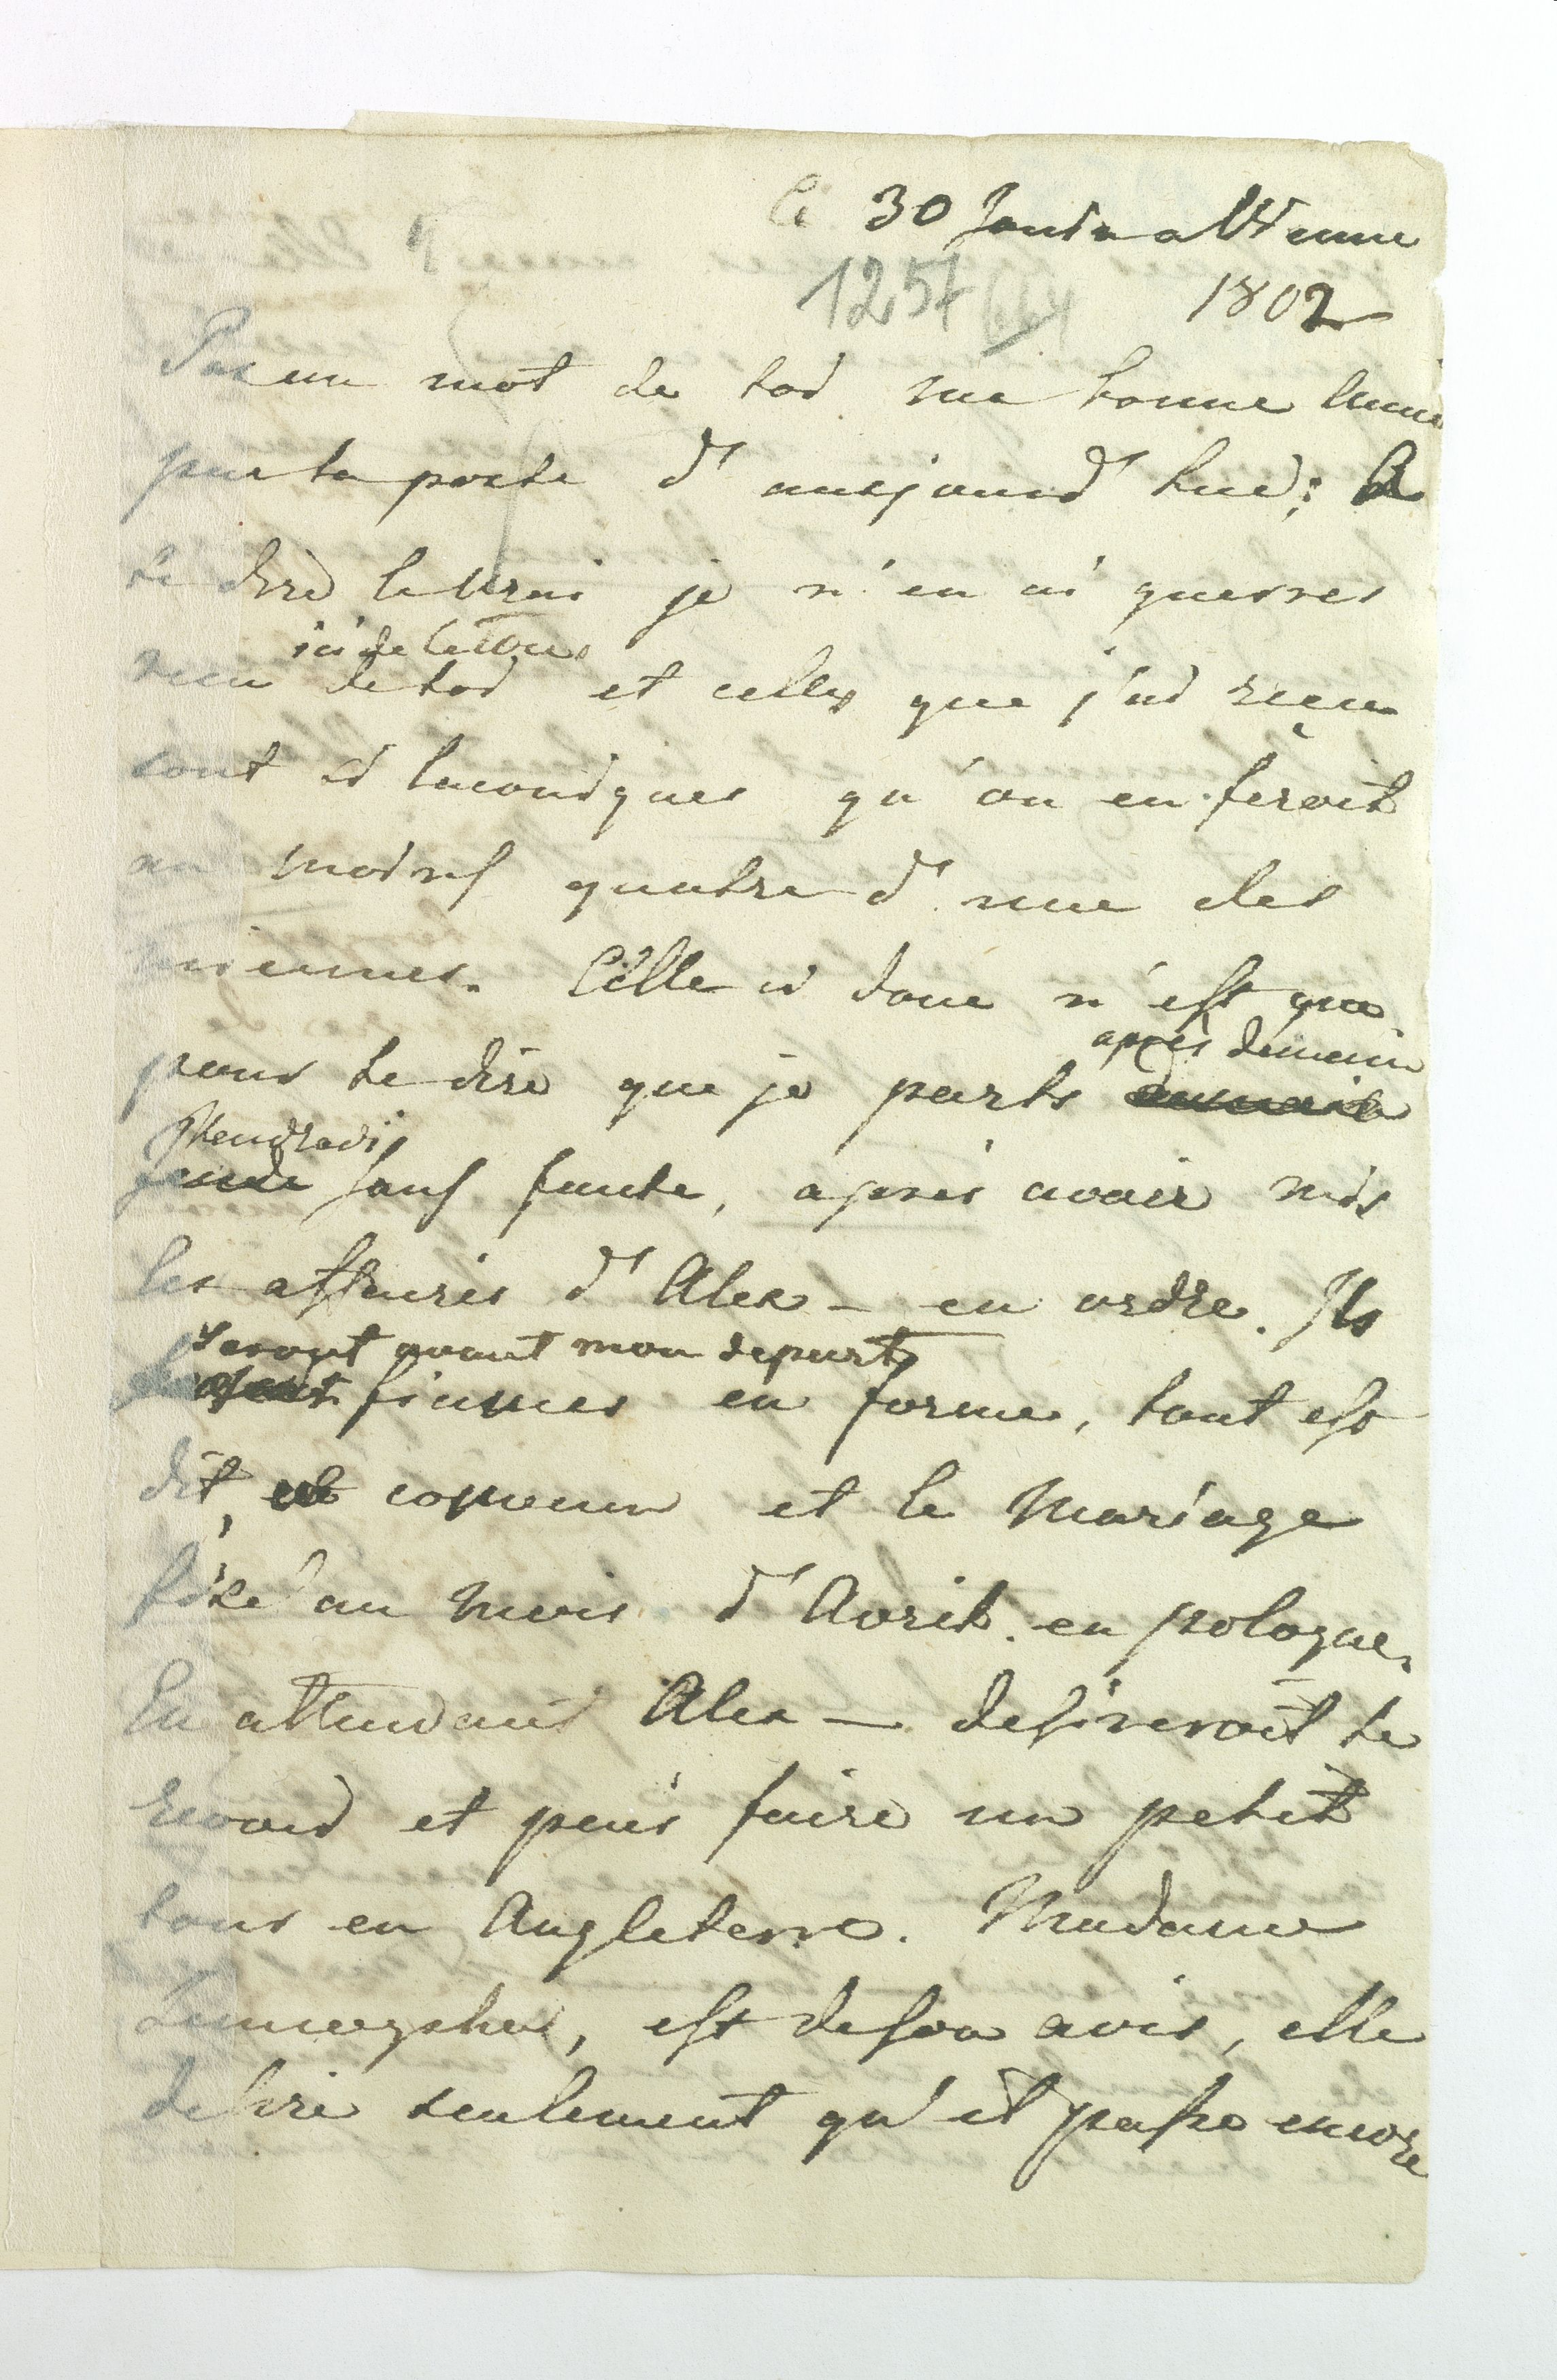 Ce 30 Janv a Vienne
1257
1802
Pas un mot de toi ma bonne Amie
par la poste d'aujourd'hui; A
te dire le vrai je n'en ai guerres
ici de lettres
recu de toi et celles que j'ai reçu
sont si laconiques qu'on en feroit
au moins quatre d'une des
miennes. Celle ci donc n'est que
après demain
pour te dire que je parts
Vendredi
sans faute, après avoir mis
les affaires d'Alex - en ordre. Ils
seront avant mon depart
signes en forme, tout est
dit, et convenu et le Mariage
fixé au Mois d'Avril. en pologne.
En attendant Alex - desireroit te
revoir et puis faire un petit
tour en Angleterre. Madame
est de son avis, elle
desire seulement qu'il passe encore